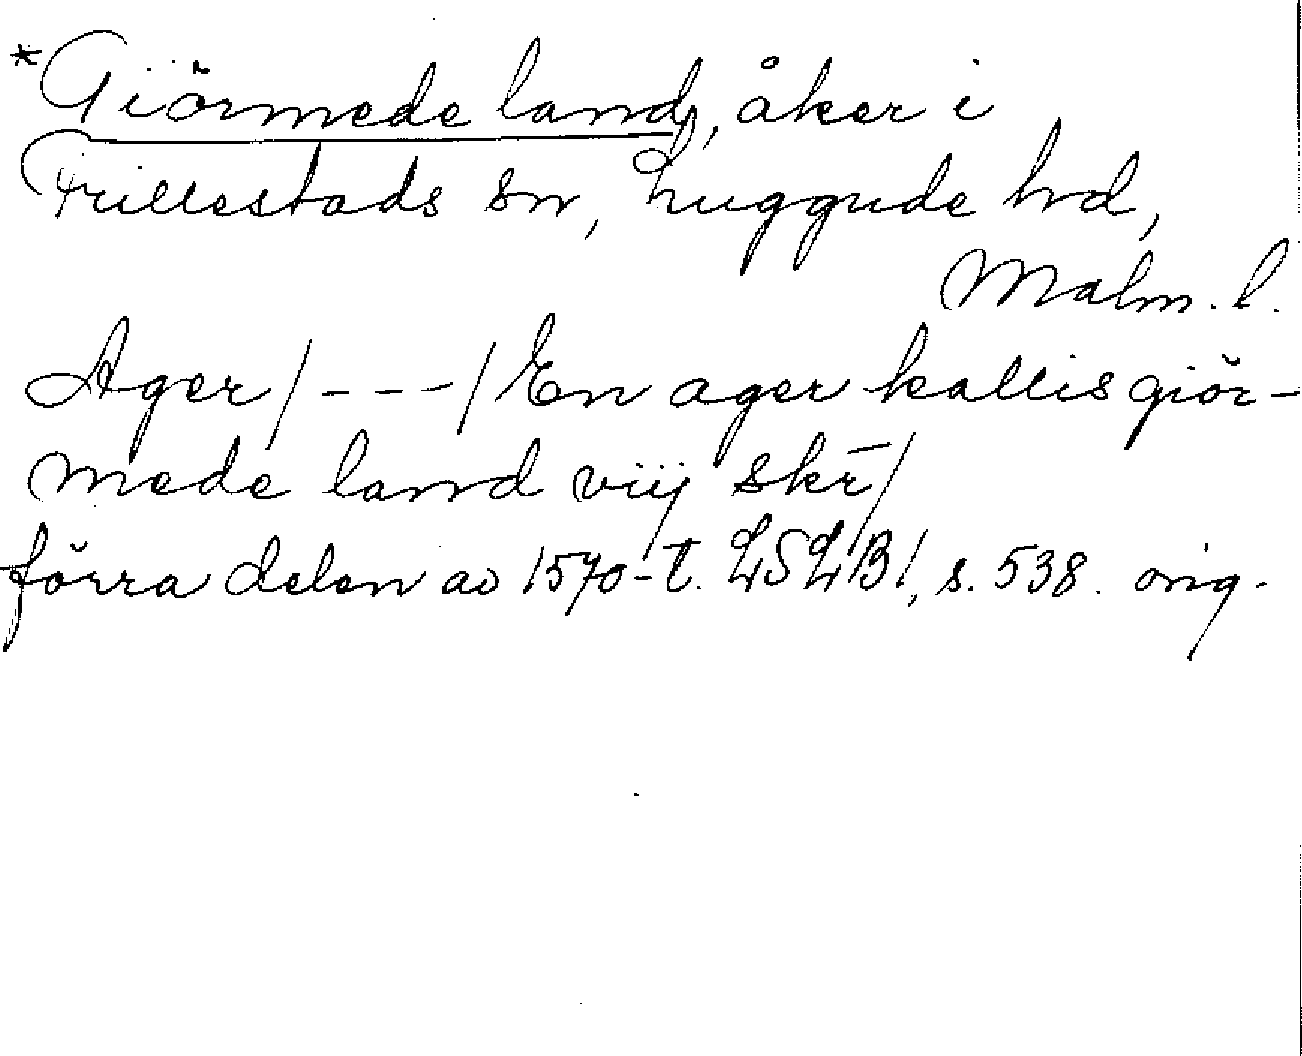 *Giörmede land, åker i
Frillestads sn, Luggude hd,
Malm. l.
Ager / - - - / En ager kallis giör-
mede land viij skr̄ /
förra delen av 1570-t. LSLB1, s. 538. orig.